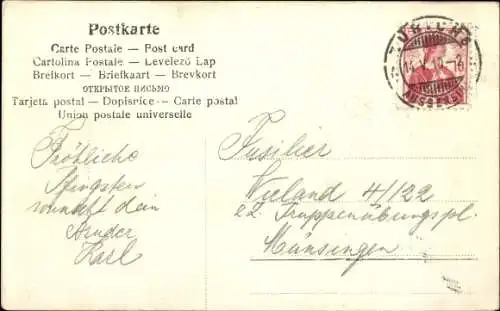 Postkarte
Carte Postale — Post card
Cartolina Postale — Levelező Lap
Brefkort — Briefkaart — Brevkort
ОТКРЫТОЕ ПИСЬМО
Tarjeta postal — Dopisnice — Carte postal
Union postale universelle
Fröhliche
Pfingsten
wünscht dein
Bruder
Karl
Füsilier
Wieland 4/122
zZ. Truppenübungspl.
Münsingen
ZÜRICH 6
14.V.10-12
AUSSERSIHL